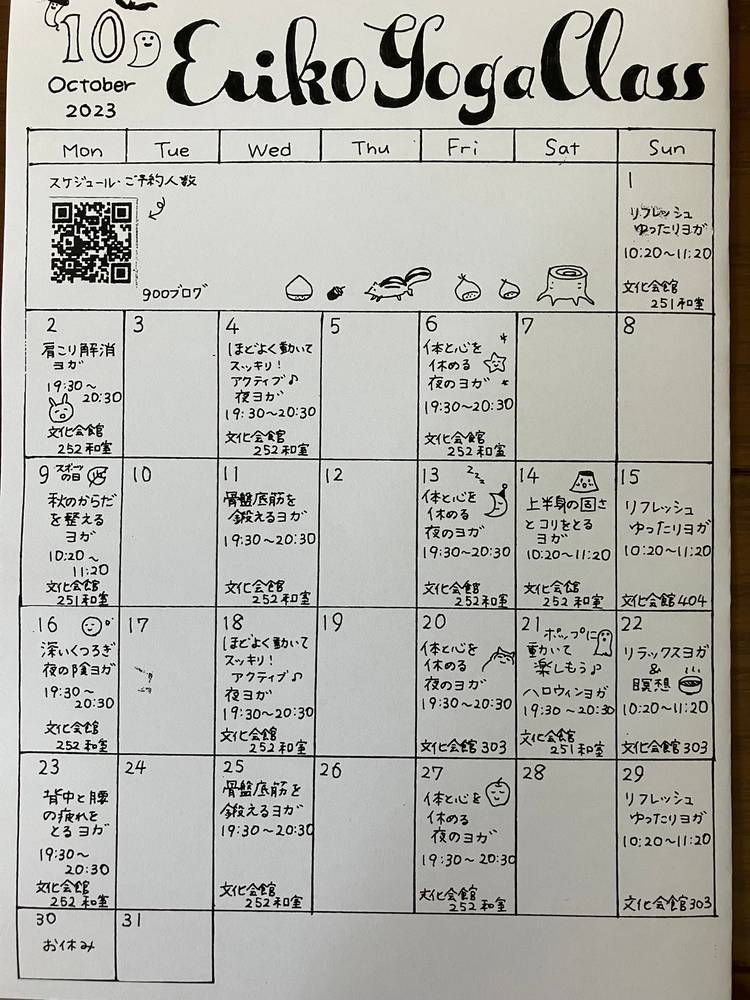 10
October
2023
Eriko Yoga Class
Mon Tue Wed Thu Fri Sat Sun
スケジュール・ご予約人数
900ブログ
1
リフレッシュ
ゆったりヨガ
10:20〜11:20
文化会館
251和室
2
肩こり解消
ヨガ
19:30〜
20:30
文化会館
252和室
3
4
ほどよく動いて
スッキリ!
アクティブ♪
夜ヨガ
19:30〜20:30
文化会館
252和室
5
6
体と心を
休める
夜のヨガ
19:30〜20:30
文化会館
252和室
7
8
9 スポーツ
の日
秋のからだ
を整える
ヨガ
10:20〜
11:20
文化会館
251和室
10
11
骨盤底筋を
鍛えるヨガ
19:30〜20:30
文化会館
252和室
12
13
zzz
体と心を
休める
夜のヨガ
19:30〜20:30
文化会館
252和室
14
上半身の固さ
とコリをとる
ヨガ
10:20〜11:20
文化会館
252和室
15
リフレッシュ
ゆったりヨガ
10:20〜11:20
文化会館404
16
深いくつろぎ
夜の陰ヨガ
19:30〜
20:30
文化会館
252和室
17
18
ほどよく動いて
スッキリ!
アクティブ♪
夜ヨガ
19:30〜20:30
文化会館
252和室
19
20
体と心を
休める
夜のヨガ
19:30〜20:30
文化会館303
21
ポップに
動いて
楽しもう♪
ハロウィンヨガ
19:30〜20:30
文化会館
251和室
22
リラックスヨガ
&
瞑想
10:20〜11:20
文化会館303
23
背中と腰
の疲れを
とるヨガ
19:30〜
20:30
文化会館
252和室
24
25
骨盤底筋を
鍛えるヨガ
19:30〜20:30
文化会館
252和室
26
27
体と心を
休める
夜のヨガ
19:30〜20:30
文化会館
252和室
28
29
リフレッシュ
ゆったりヨガ
10:20〜11:20
文化会館303
30
お休み
31